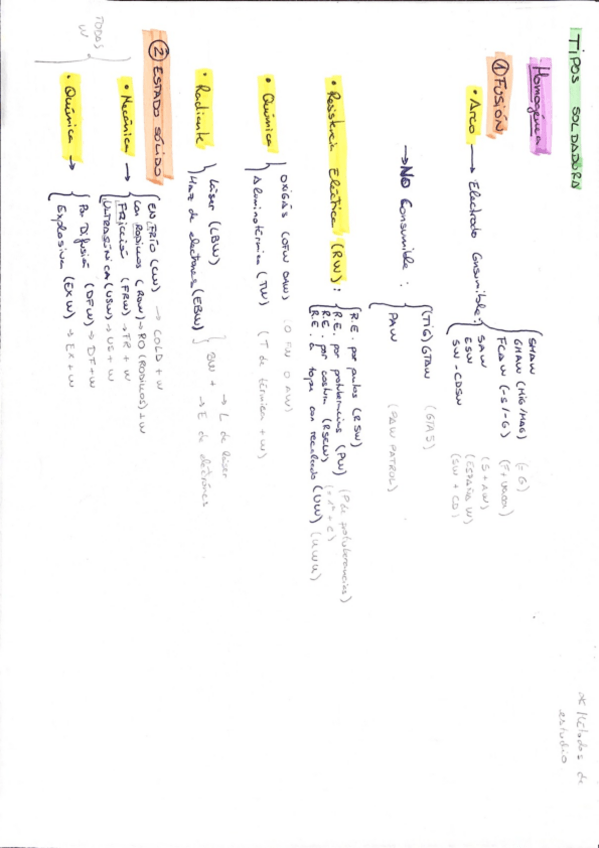 TIPOS SOLDADURA
* Métodos de estudio
Homogénea
① FUSIÓN
• Arco → Electrodo Consumible:
SMAW
GMAW (MIG/MAG) (= G)
FCAW (-S/-G)
SAW (S + AW)
ESW (ESPAÑA W)
SW - CDSW (SW + CD)
→ NO Consumible:
(TIG) GTAW (GTAS)
PAW (PAW PATROL)
• Resistencia Eléctrica (RW):
R.E. por puntos (RSW)
R.E. por protuberancias (PW) (P de protuberancias)
R.E. por costura (RSEW)
R.E. a tope con recalcado (UW) (UWU)
• Química
OXIGÁS (OFW OAW) (O FW O AW)
Aluminotérmica (TW) (T de térmica + W)
• Radiante
Láser (LBW)
Haz de electrones (EBW)
BW + → L de láser
→ E de electrones
② ESTADO SÓLIDO
TODOS W
• Mecánica →
EN FRÍO (CW) → COLD + W
con RODILLOS (ROW) → RO (RODILLOS) + W
FRICCIÓN (FRW) → FR + W
ULTRASÓNICA (USW) → US + W
• Química →
Por Difusión (DFW) → DF + W
Explosiva (EXW) → EX + W